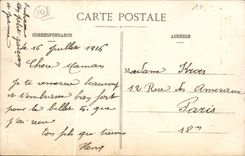 CARTE POSTALE
CORRESPONDANCE
ADRESSE
le 16 Juillet 1916
Chère Maman
je te remercie beaucoup
et t'embrasse bien fort
pour le billet
que
j'ai reçu
ton fils qui t'aime
Henry
Madame
12 Rue des Amiraux
Paris
18e